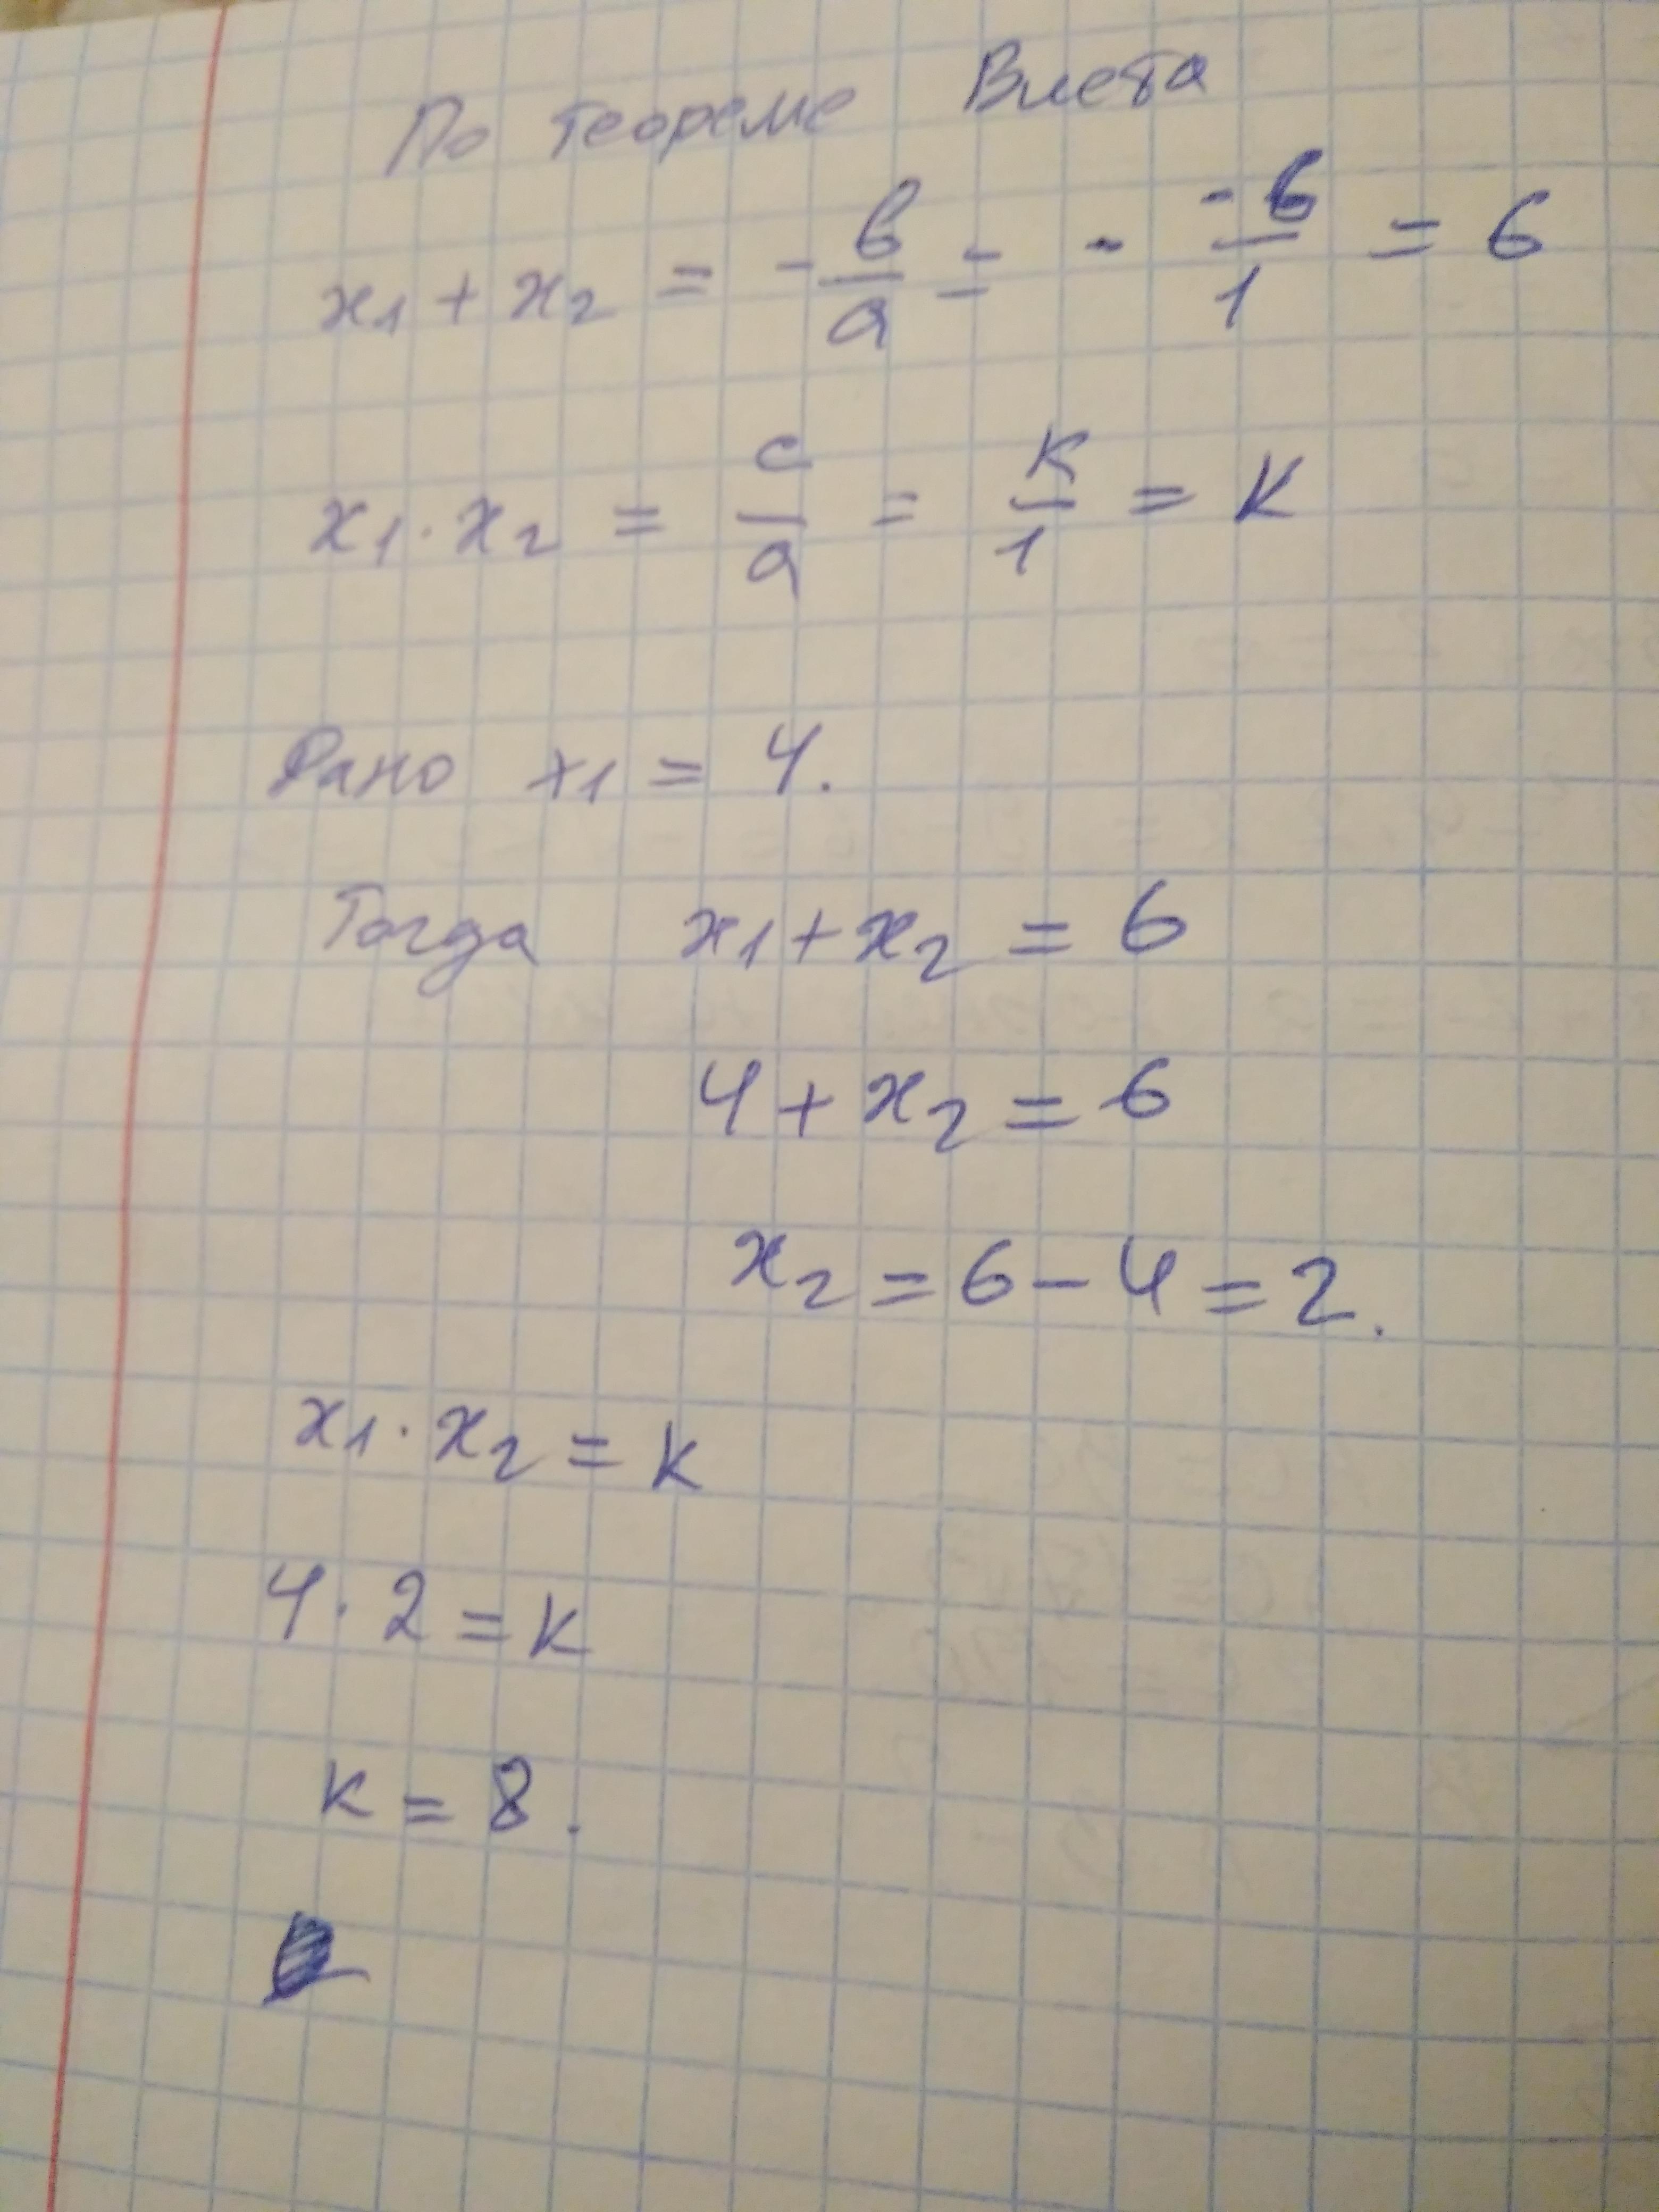 По теореме Виета
x1 + x2 = - в/а = - -6/1 = 6
x1 · x2 = c/a = k/1 = k
Дано x1 = 4.
Тогда x1 + x2 = 6
4 + x2 = 6
x2 = 6 - 4 = 2.
x1 · x2 = k
4 · 2 = k
k = 8.